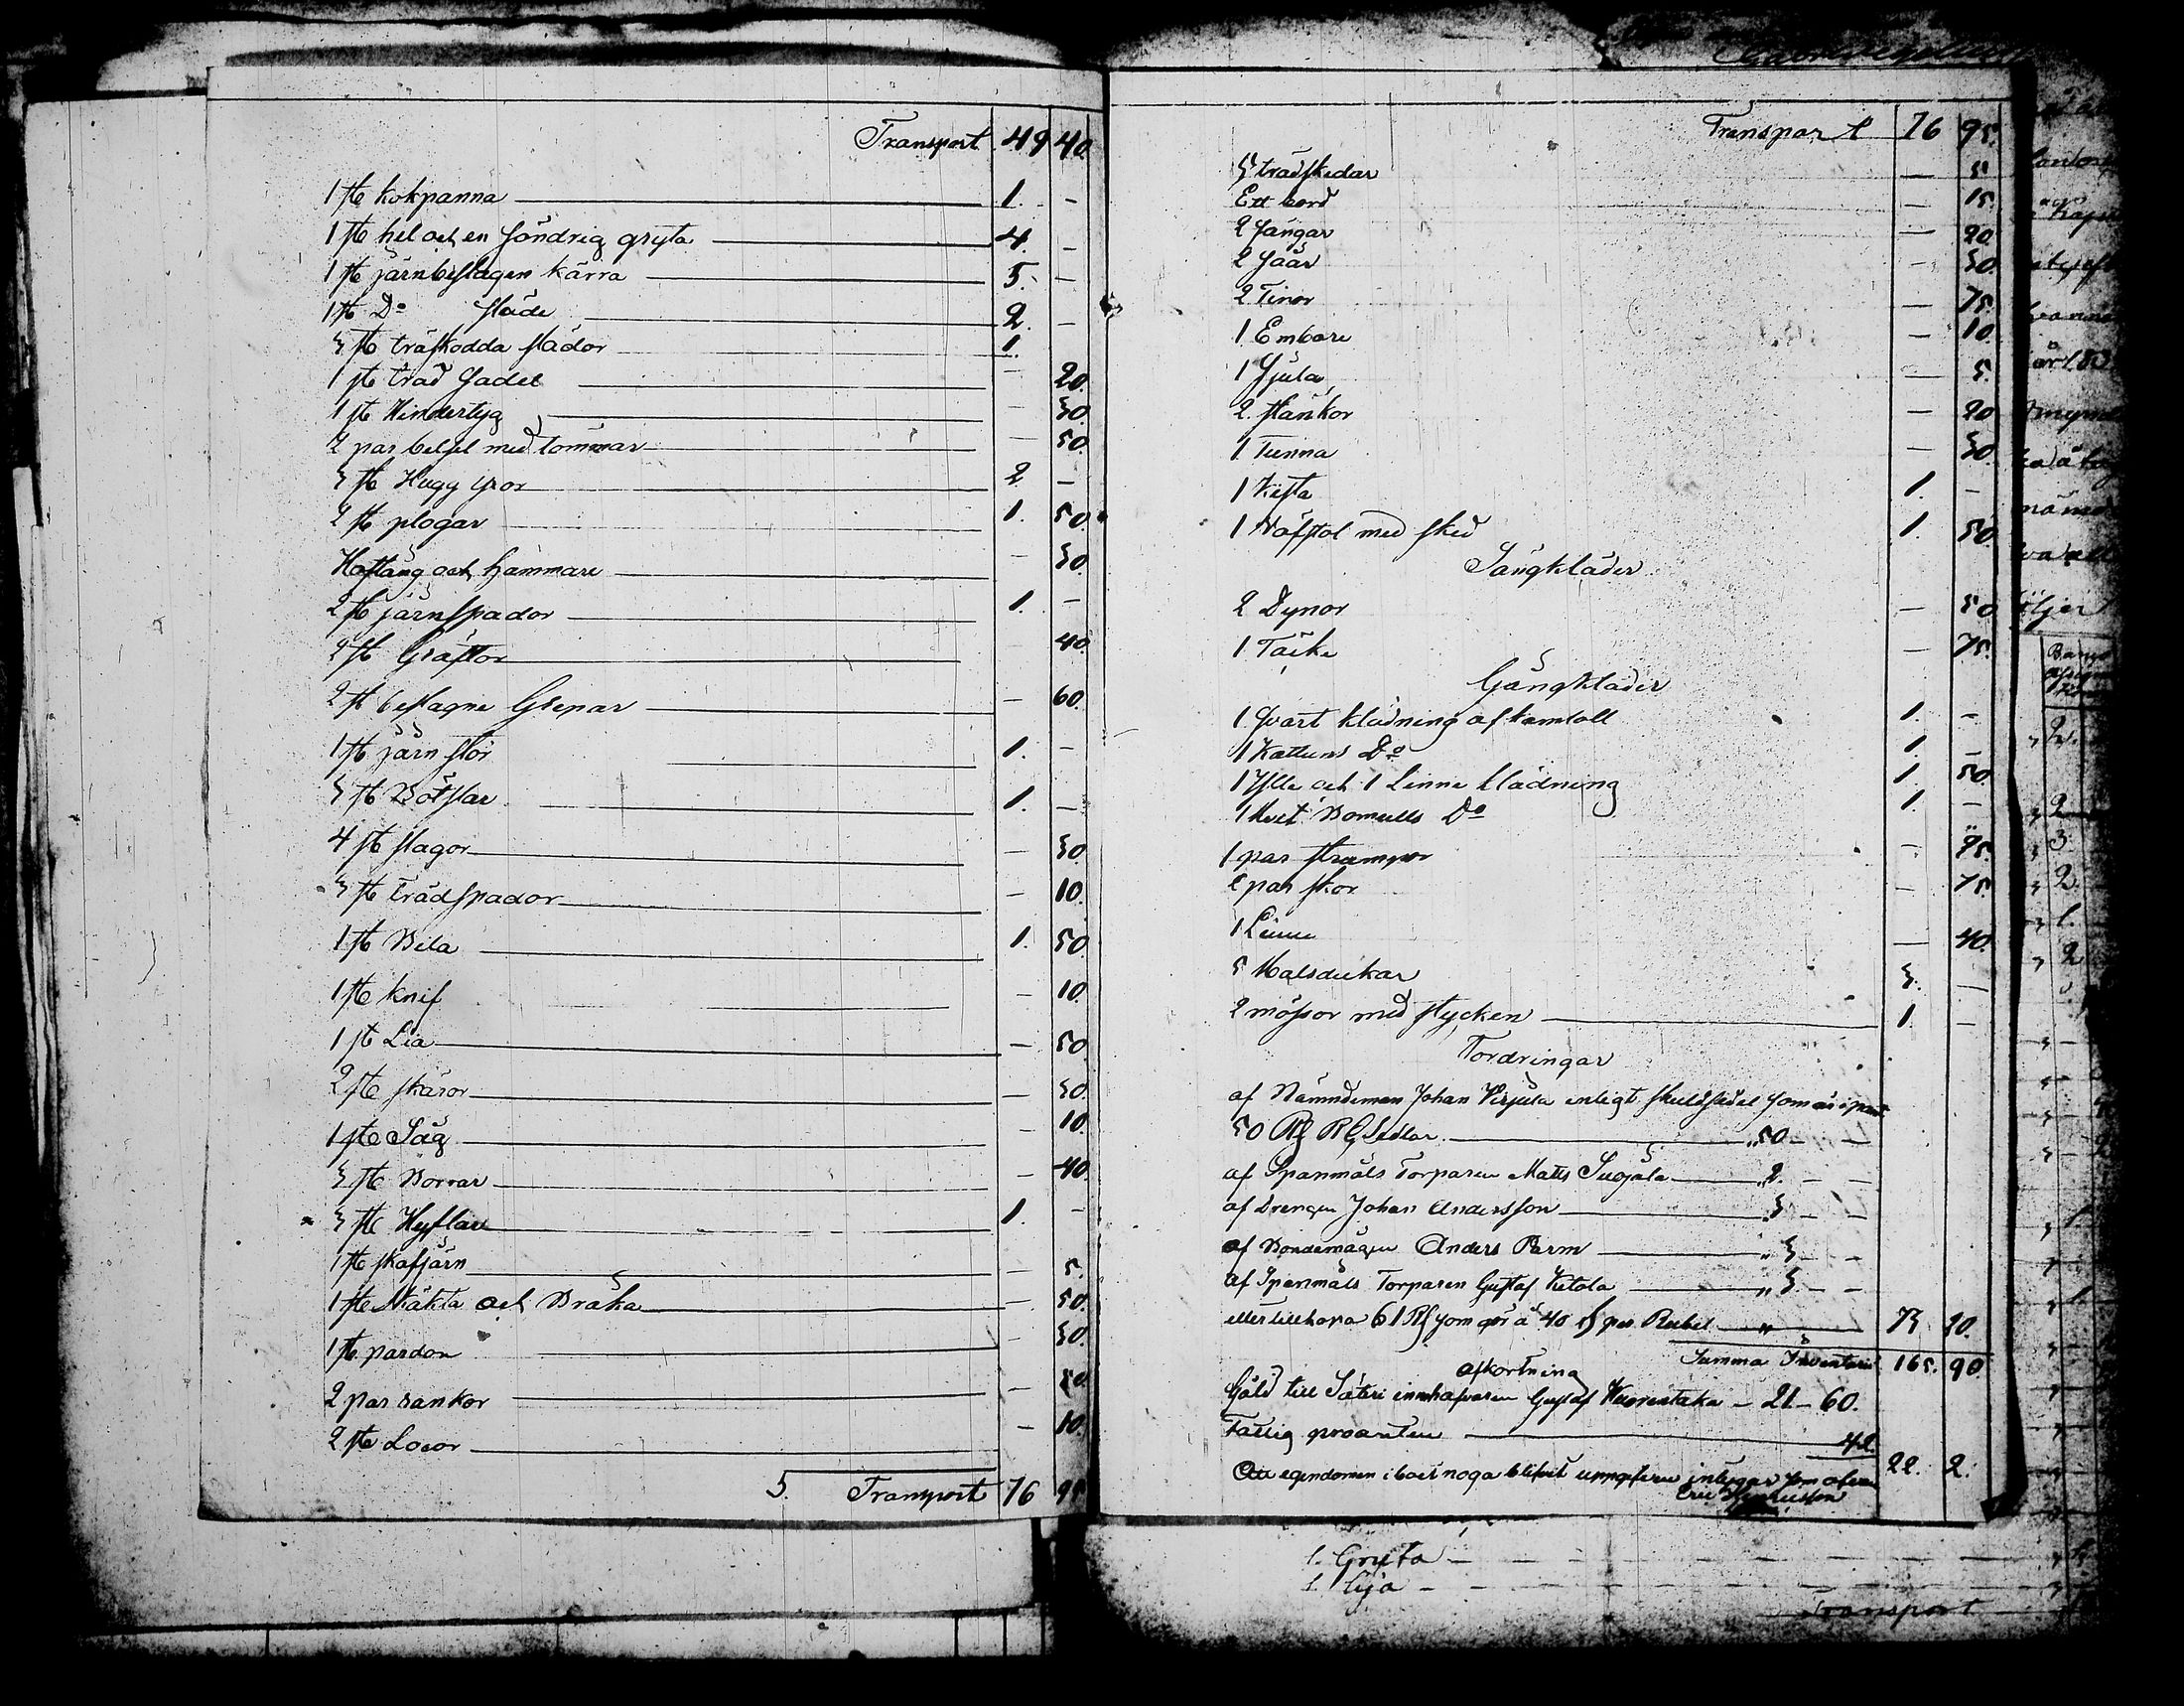 Transport 49 40.
1 st kokpanna 1. -
1 st hel och en söndrig gryta 4 -
1 st järnbeslagen kärra 5. -
1 st Do släde 2. -
3 st träskodda slädor 1.
1 st träd sadel - 20.
1 st Hindertyg - 30.
2 par betsel med tömmar - 50.
3 st Hugg yxor 2 -
2 st plogar 1. 50.
Hoftång och hammare - 30.
2 st järnspador 1. -
2 st Gräftor 40.
2 st beslagne Grepar - 60.
1 st järn stör 1. -
3 st Bötslar 1. -
4 st slagor - 30.
3 st trädspador - 10.
1 st Bila 1. 50.
1 st knif - 10.
1 st Lia - 50.
2 st skäror - 30.
1 st Såg - 10.
3 st Borrar - 40.
3 st Hyflar 1. -
1 st skafjärn - 5.
1 st Häkta och Bråka - 50.
1 st pardon - 30.
2 par rankor - 20.
2 st Locor - 10.
5. Transport 76 95
Transport 76 95.
5 trädskedar - 5
Ett bord - 15.
2 sängar - 20
2 såår - 30.
2 Tinor - 75.
1 Embare - 10.
1 Skjula - 5.
2 flänkor - 20
1 Tunna - 30.
1 Kista 1. -
1 Väfstol med sked 1. 50.
Sängkläder
2 Dynor - 50
1 Täcke - 75.
Gångkläder
1 svart klädning af kamloll 1. -
1 Kattuns Do 1. -
1 Ylle och 1 Linne klädning 1. 50
1 Hvit Bomulls Do 1. -
1 par strumpor - 75.
2 par skor - 75.
1 Linne - 40.
5 Halsdukar 3. -
2 mössor med stycken 1. -
Fordringar
af Nämndeman Johan Virjula enligt skuldsedel som är i pant
50 Rf RG Sedlar " 50 - -
af Spanmåls Torparen Matts Suojala " 2. - -
af Drengen Johan Andersson " 3 - -
af Bondemågen Anders Parm " 3 - -
af Spanmåls Torparen Gustaf Ketola " 3 - -
eller tillhopa 61 Rf som gör à 40 rf per Rubel " 73 20.
Summa Inventarii 165. 90
afkortning
Gäld till Säteri innehafvaren Gustaf Kuorentaka - 21 - 60.
Fattig procenten 42.
22. 2.
Att egendomen i boet noga blifvit uppgifven intygar som ofvan
Eric Henricsson
1. Gryta -
1. Lija -
Transport